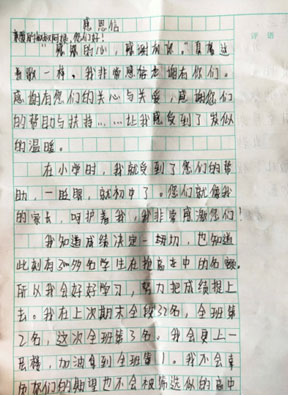 评语
感恩帖
亲爱的叔叔阿姨,您们好!
"感恩的心,感谢有您。"真像这
首歌一样。我非常感恩老天让我有你们。
感谢有您们的关心与关爱,感谢您们
的帮助与扶持……让我感受到了家似
的温暖。
在小学时,我就受到了您们的帮
助,一眨眼,就初中了。您们就像我
的家长,呵护着我,我非常感激您们!
我知道成绩决定一切,也知道
此刻有多名学生在抢高中的名额。
所以我会好好学习,努力把成绩提上
去。我在上次期末全段32名,全班第
2名,这次全班第3名。我会更上一
层楼,加油拿到全班第1。我不会辜
负你们的期望也不会被高中